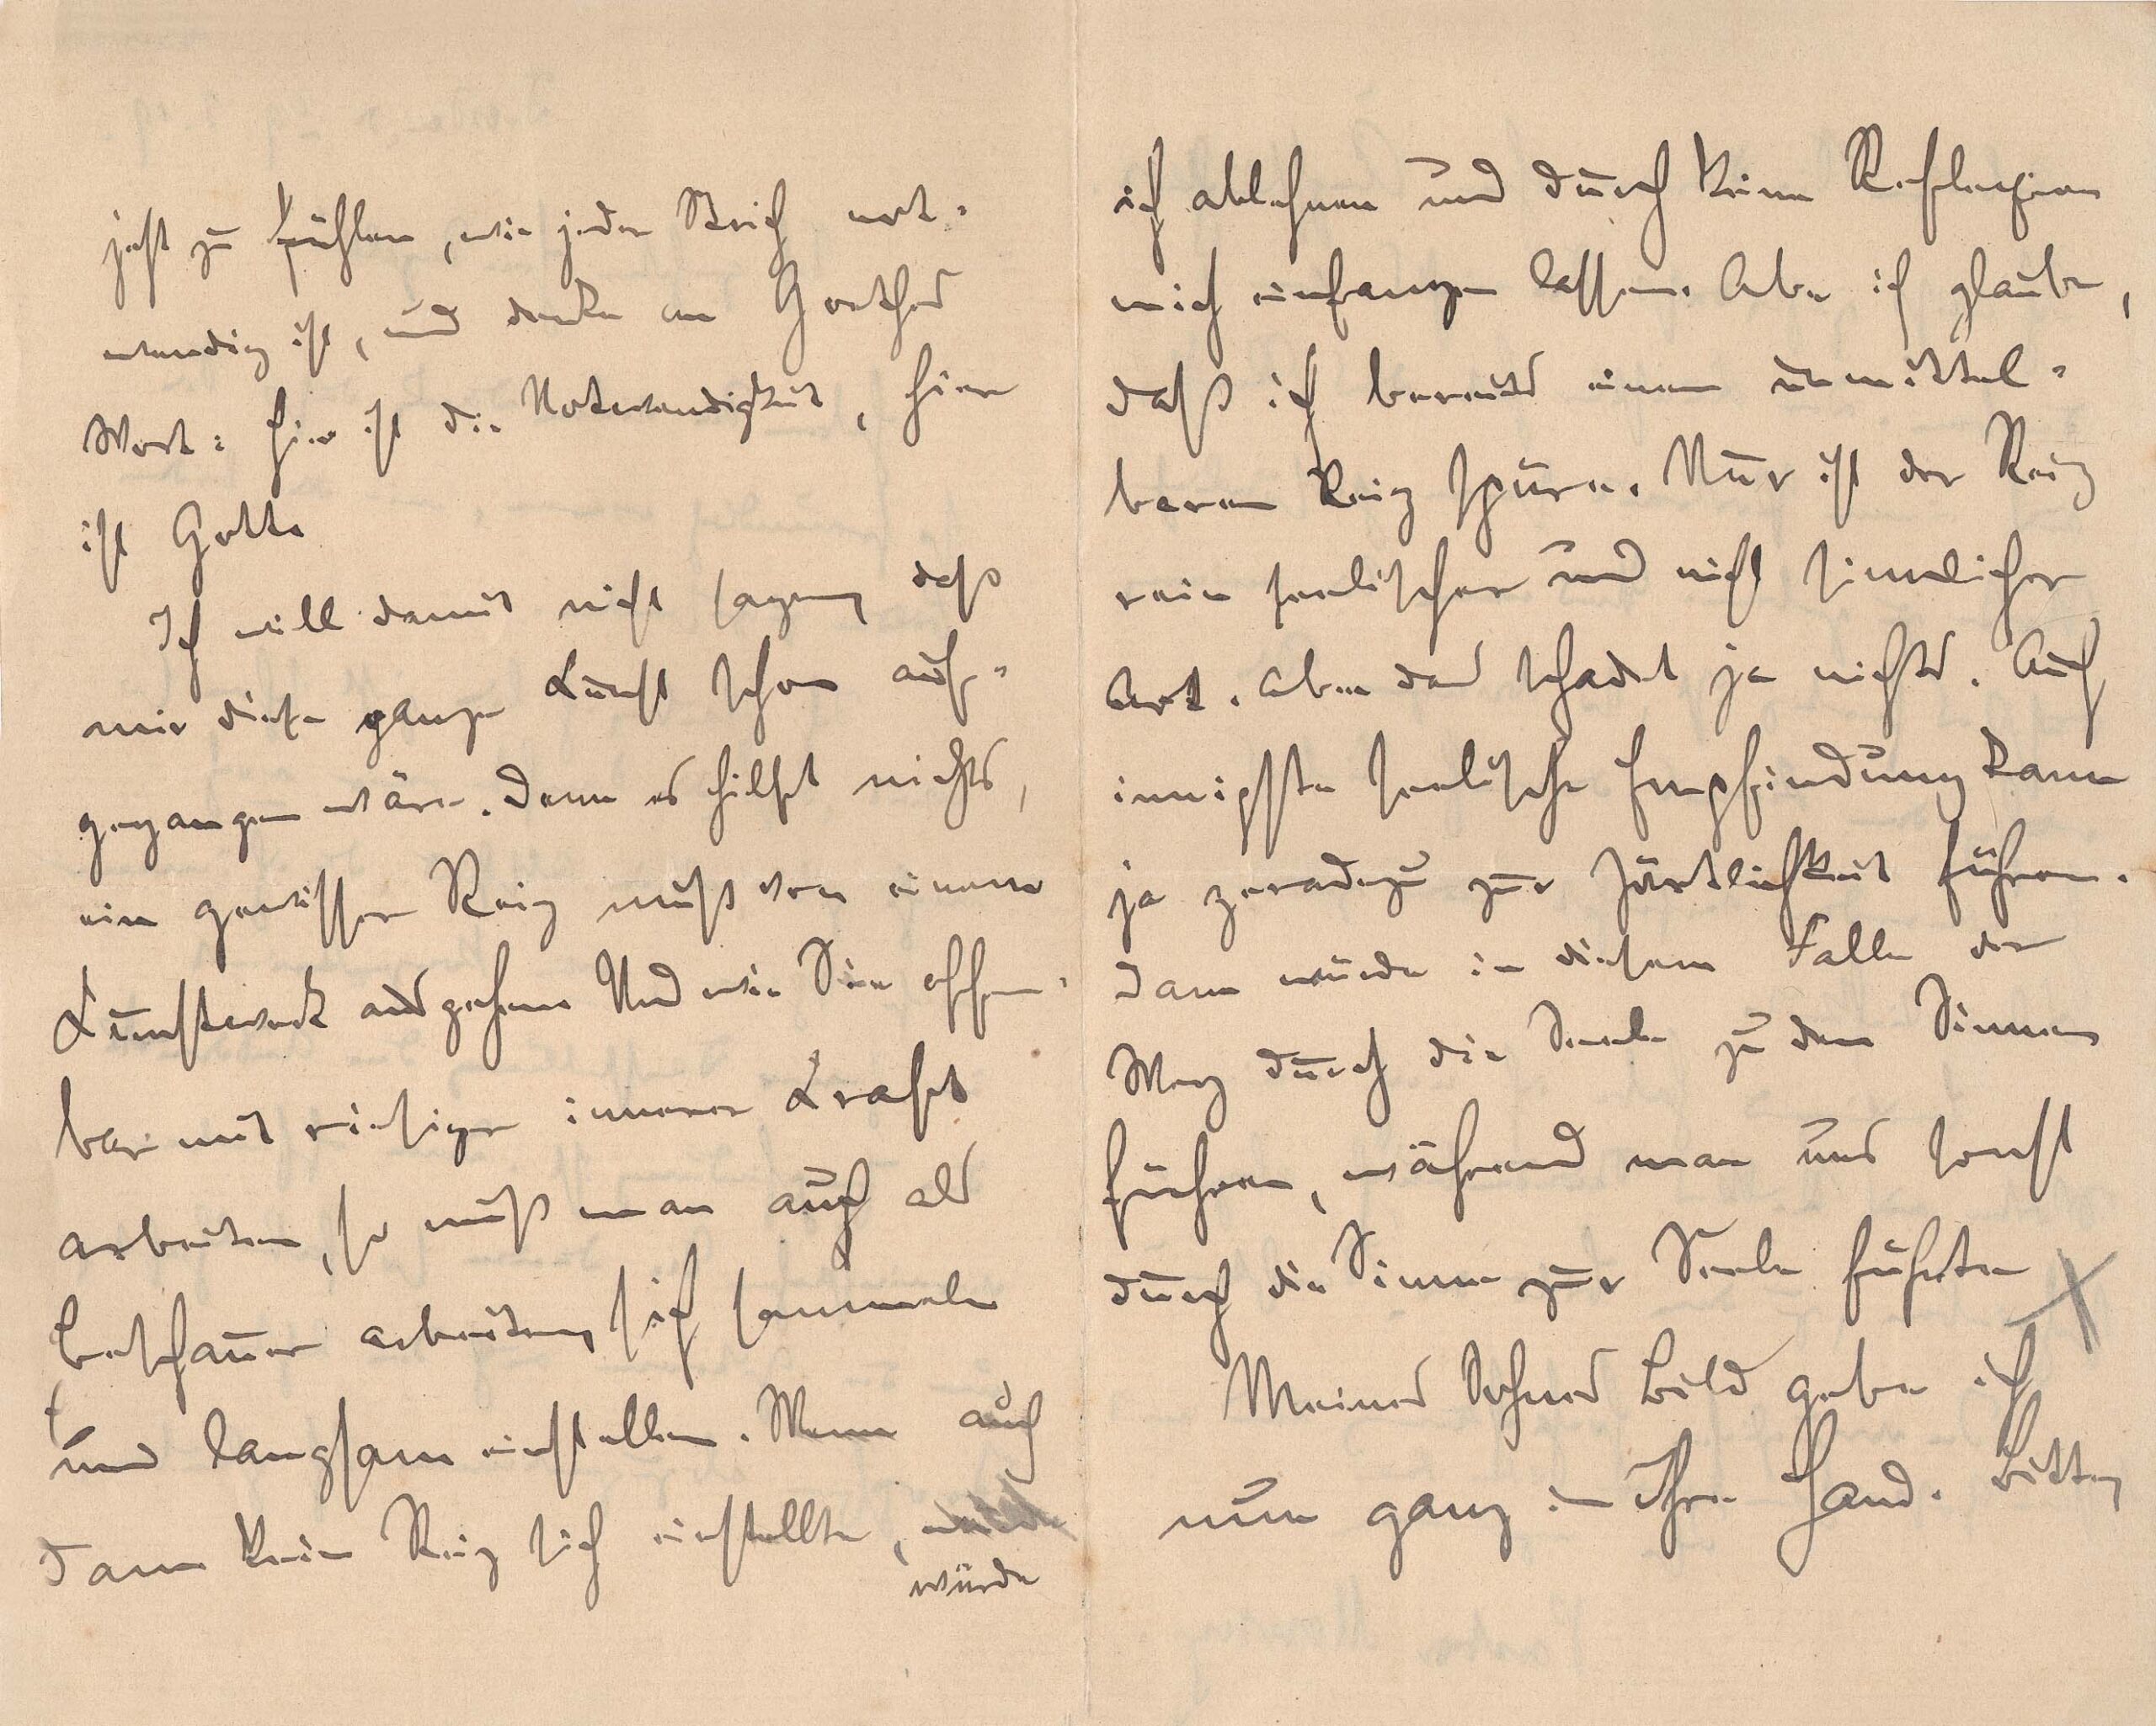 jetzt zu fühlen, wie jeder Strich not-
wendig ist, und denke an Goethes
Wort: hier ist die Notwendigkeit, hier
ist Gott.
Ich will damit nicht sagen, daß
mir diese ganze Kunst schon auf-
gegangen wäre. Denn es hilft nichts,
ein gewisser Reiz muß von einem
Kunstwerk ausgehen. Und wie Sie offen-
bar mit riesiger innerer Kraft
arbeiten, so muß man auch als
Beschauer arbeiten, sich sammeln
und langsam einstellen. Wenn auch
dann kein Reiz sich einstellte,
würde
ich ablehnen und durch keine Reflexion
mich einfangen lassen. Aber ich glaube,
daß ich bereits einen unmittel-
baren Reiz spüre. Nur ist der Reiz
rein seelischer und nicht sinnlicher
Art. Aber das schadet ja nichts. Auch
innigste seelische Empfindung kann
ja geradezu zur Zärtlichkeit führen.
Dann würde in diesem Falle der
Weg durch die Seele zu den Sinnen
führen, während man uns sonst
durch die Sinne zur Seele führte
Meines Sohnes Bild gebe ich
nun ganz in Ihre Hand. Bitte,